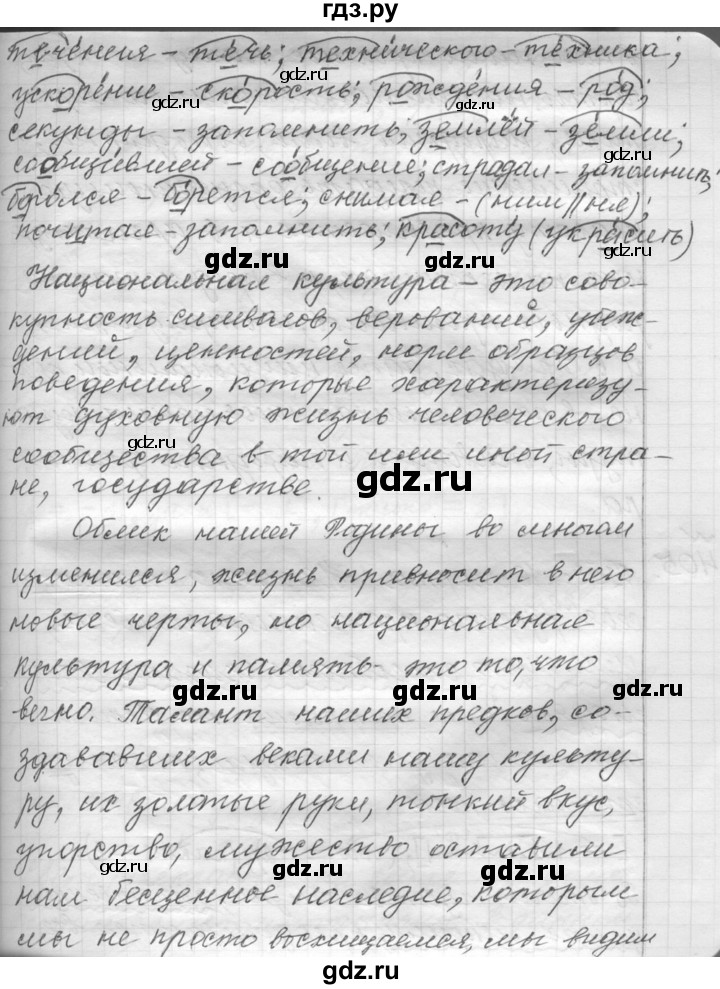 гдз.ру
течения – течь; технического – техника;
gdz.ru gdz.ru
ускорение – скорость; рождения – род;
секунды – запомнить; землёй – земли;
сообщившей – сообщение; страдал – запомнить;
боролся – борется; снимая – (ним//ня);
почитал – запомнить; красоту (украсить)
gdz.ru gdz.ru
Национальная культура – это сово-
купность символов, верований, убеж-
gdz.ru gdz.ru gdz.ru
дений, ценностей, норм образцов
поведения, которые характеризу-
ют духовную жизнь человеческого
gdz.ru
сообщества в той или иной стра-
gdz.ru
не, государстве.
Облик нашей Родины во многом
gdz.ru gdz.ru
изменился, жизнь привносит в него
новые черты, но национальная
культура и память – это то, что
gdz.ru gdz.ru gdz.ru
вечно. Талант наших предков, со-
здававших веками нашу культу-
gdz.ru
ру, их золотые руки, тонкий вкус,
упорство, мужество оставили
gdz.ru gdz.ru gdz.ru
нам бесценное наследие, которым
мы не просто восхищаемся, мы видим
gdz.ru